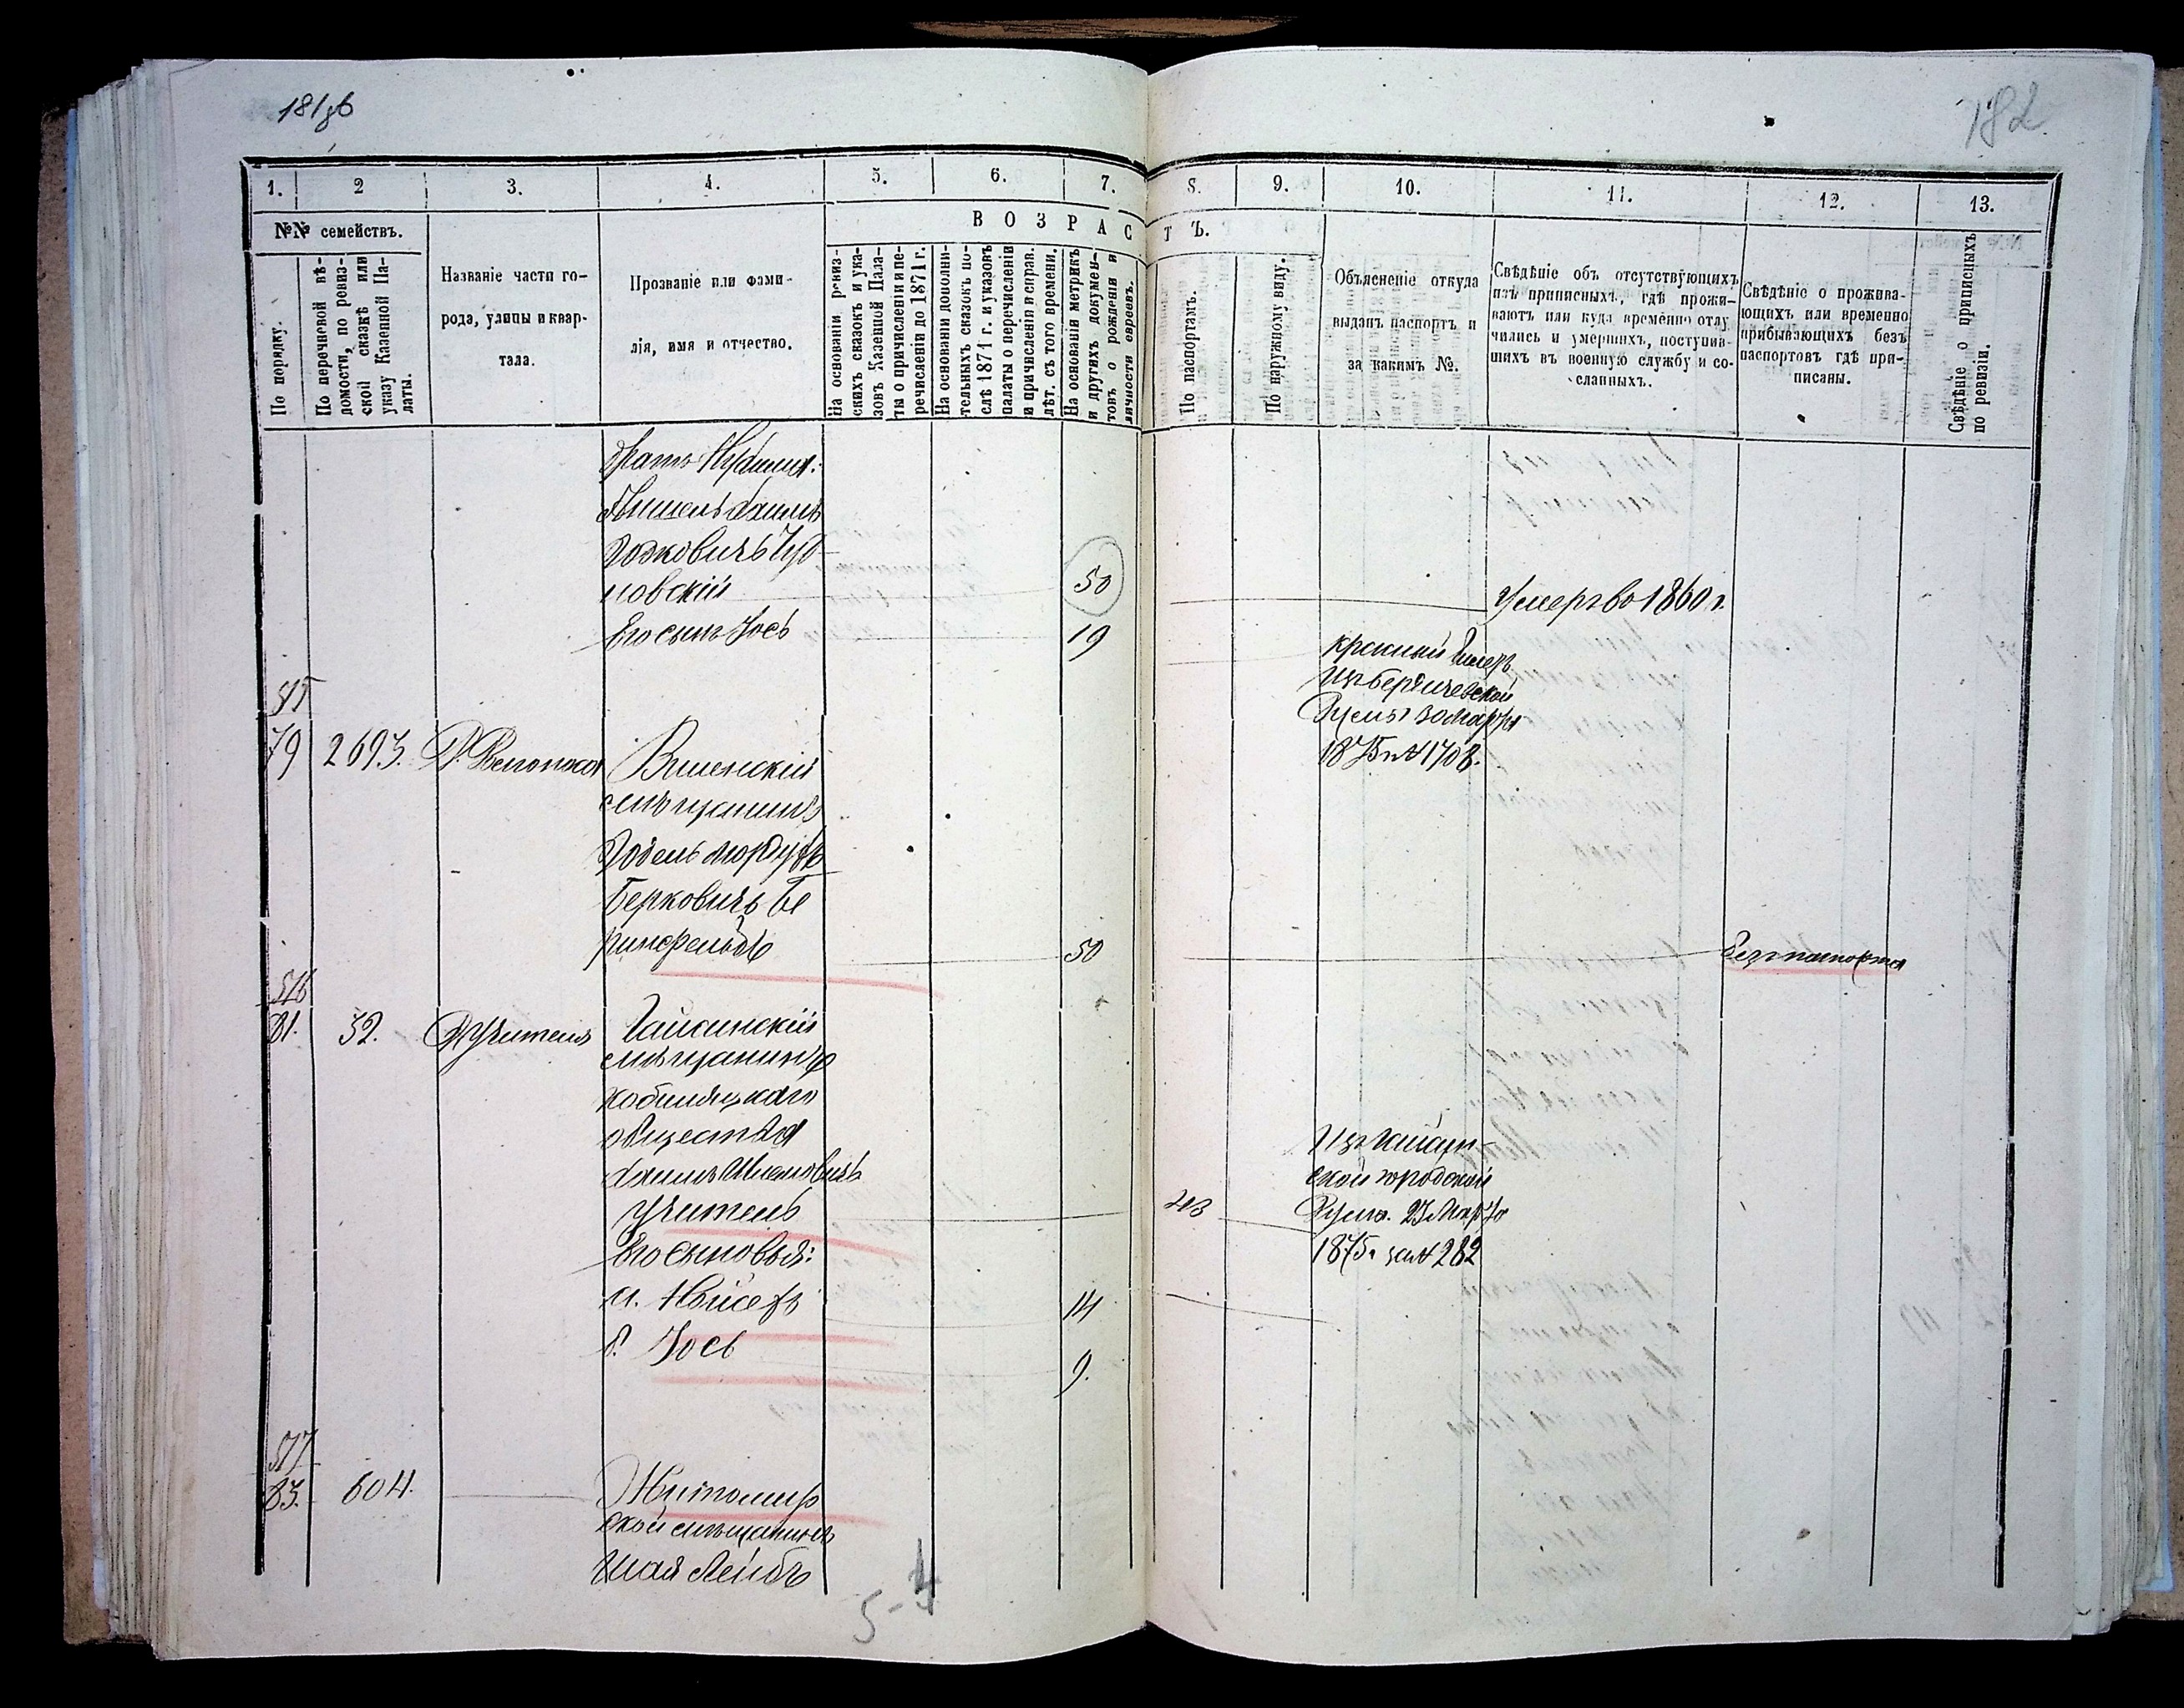 181об
182
1. 2 3. 4. 5. 6. 7. 8. 9. 10. 11. 12. 13.
№№ семействъ.
По порядку.
По перечневой вѣ-
домости, по ревиз-
ской сказкѣ или
указу Казенной Па-
латы.
Названіе части го-
рода, улицы и квар-
тала.
Прозваніе или фами-
лія, имя и отчество.
ВОЗРАСТЪ.
На основаніи ревиз-
скихъ сказокъ и ука-
зовъ Казенной Пала-
ты о причисленіи и пе-
речисленіи до 1871 г.
На основаніи дополни-
тельныхъ сказокъ по-
слѣ 1871 г. и указовъ
палаты о перечисленіи
и причисленіи и справ.
лѣт. съ того времени.
На основаніи метрикъ
и другихъ докумен-
товъ о рожденіи и
личности евреевъ.
По паспортамъ.
По наружному виду.
Объясненіе откуда
выданъ паспортъ и
за какимъ №.
Свѣдѣніе объ отсутствующихъ
изъ приписныхъ, гдѣ прожи-
ваютъ или куда временно отлу
чились и умершихъ, поступив-
шихъ въ военную службу и со-
сланныхъ.
Свѣдѣніе о прожива-
ющихъ или временно
прибывающихъ безъ
паспортовъ гдѣ при-
писаны.
Свѣдѣніе о приписныхъ
по ревизіи.
братъ
новскій 50 Умеръ во 1860 г.
Его сынъ Іось 19
изъ Бердичевской
Думы 30 Марта
1875 г № 1708.
515
79 2693. Виленскій
мѣщанинъ
Берковичъ Бе
ринфельдъ 50 безъ паспорта
516
81. 32. Д Учителя Гайсинскій
мѣщанинъ
общества
Хаимъ
Учитель
Его сыновья:
а. Мойсей 14
б. Іось 9.
Изъ Гайсин-
ской городской
Думы. 27 Марта
1875 г за № 282
517
83. 604. Житомир
ской мѣщанинъ
Шая Лейбъ
5-4